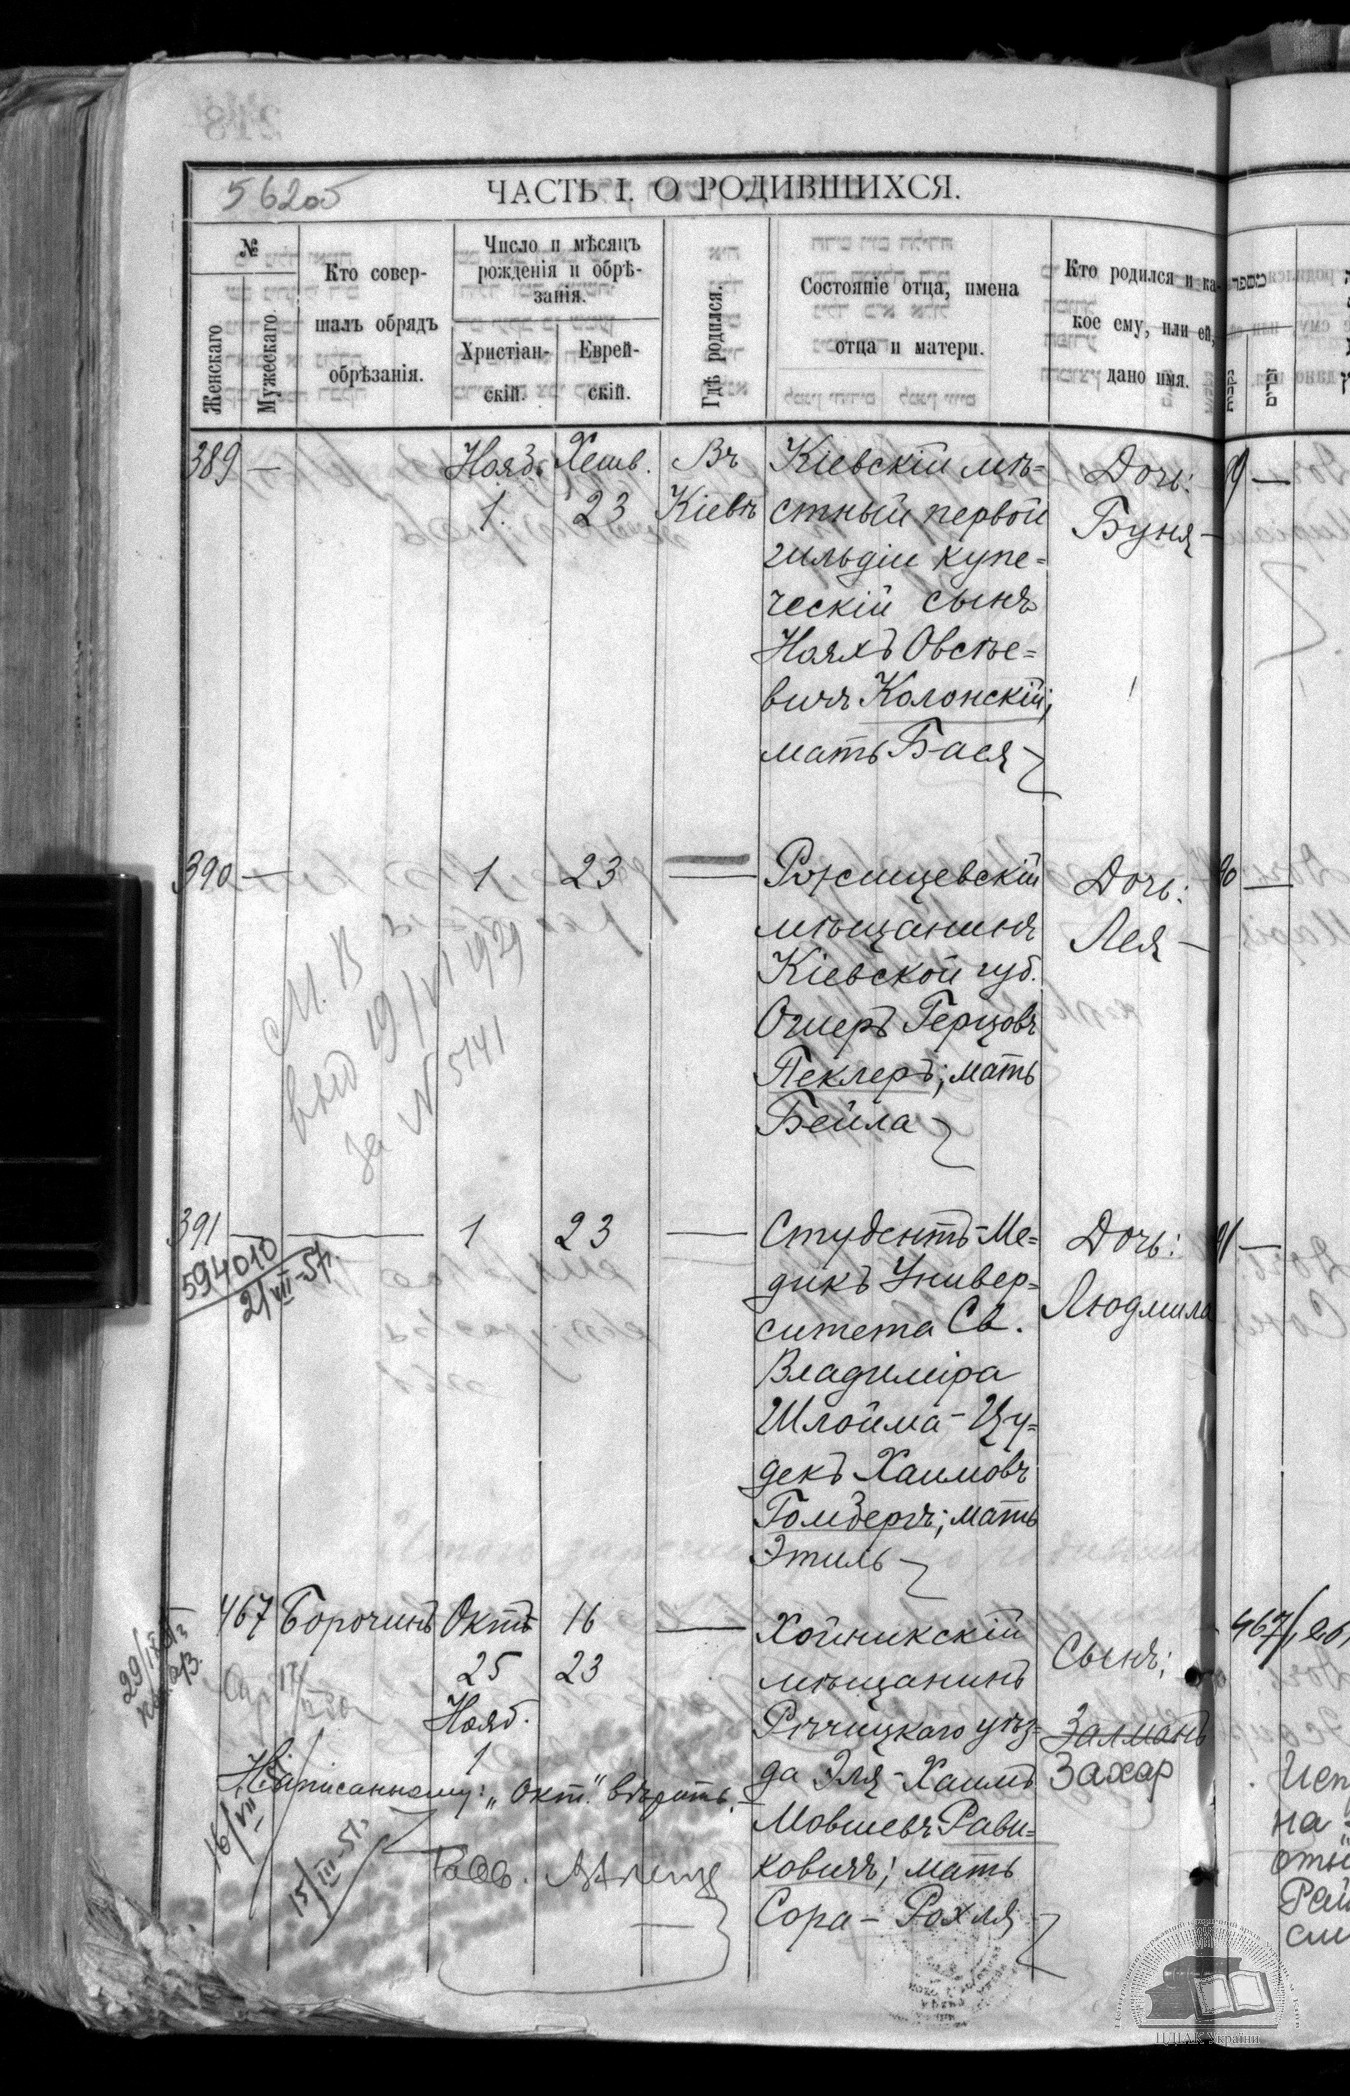 562об
ЧАСТЬ I. О РОДИВШИХСЯ.
№
Женскаго
Мужескаго
Кто совер-
шалъ обрядъ
обрѣзанія.
Число и мѣсяцъ
рожденія и обрѣ-
занія.
Христіан-
скій.
Еврей-
скій.
Гдѣ родился.
Состояніе отца, имена
отца и матери.
Кто родился и ка-
кое ему, или ей,
дано имя.
389 —
Нояб. Хешв.
1. 23
Въ
Кіевѣ
Кіевскій мѣ=
стный первой
гильдіи купе=
ческій сынъ
Ноях Овсѣе=
вичъ Колонскій;
мать Бася
Дочь:
Буня
390 —
1 23 —
Рожищевскій
мѣщанинъ
Кіевской губ.
Ошеръ Герцовъ
Пеклеръ; мать
Бейла
Дочь:
Лея
М. В
выд 19/VI 1929
за N 5141
391 — —
1 23 —
594010
2/VII-51.
Студентъ-Ме=
дикъ Универ=
ситета Св.
Владиміра
Шлойма-Цу=
декъ Хаимовъ
Гомбергъ; мать
Этиль
Дочь:
Людмила
467 Борочинъ Окт. 16 —
25 23
Нояб.
1
Хойникскій
мѣщанинъ
Рѣчицкаго уѣз=
да Эля-Хаимъ
Мовшевъ Рави=
ковичъ; мать
Сора-Рохля
Сынъ:
Залманъ
Захар
Написанному: „Окт." вѣрить.
16/VII
15/III-51
Равв.
467
Исп
на
ЦДІАК України